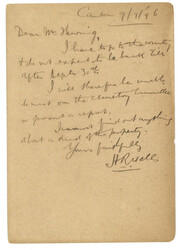 9/7/96
Dear Mr
I have to go to the country
& do not expect to be back
after Sept 30th
I will therefore be unable
to meet on the Committee
or present a report.
I cannot find out anything
about a deed of the property.
Yours faithfully